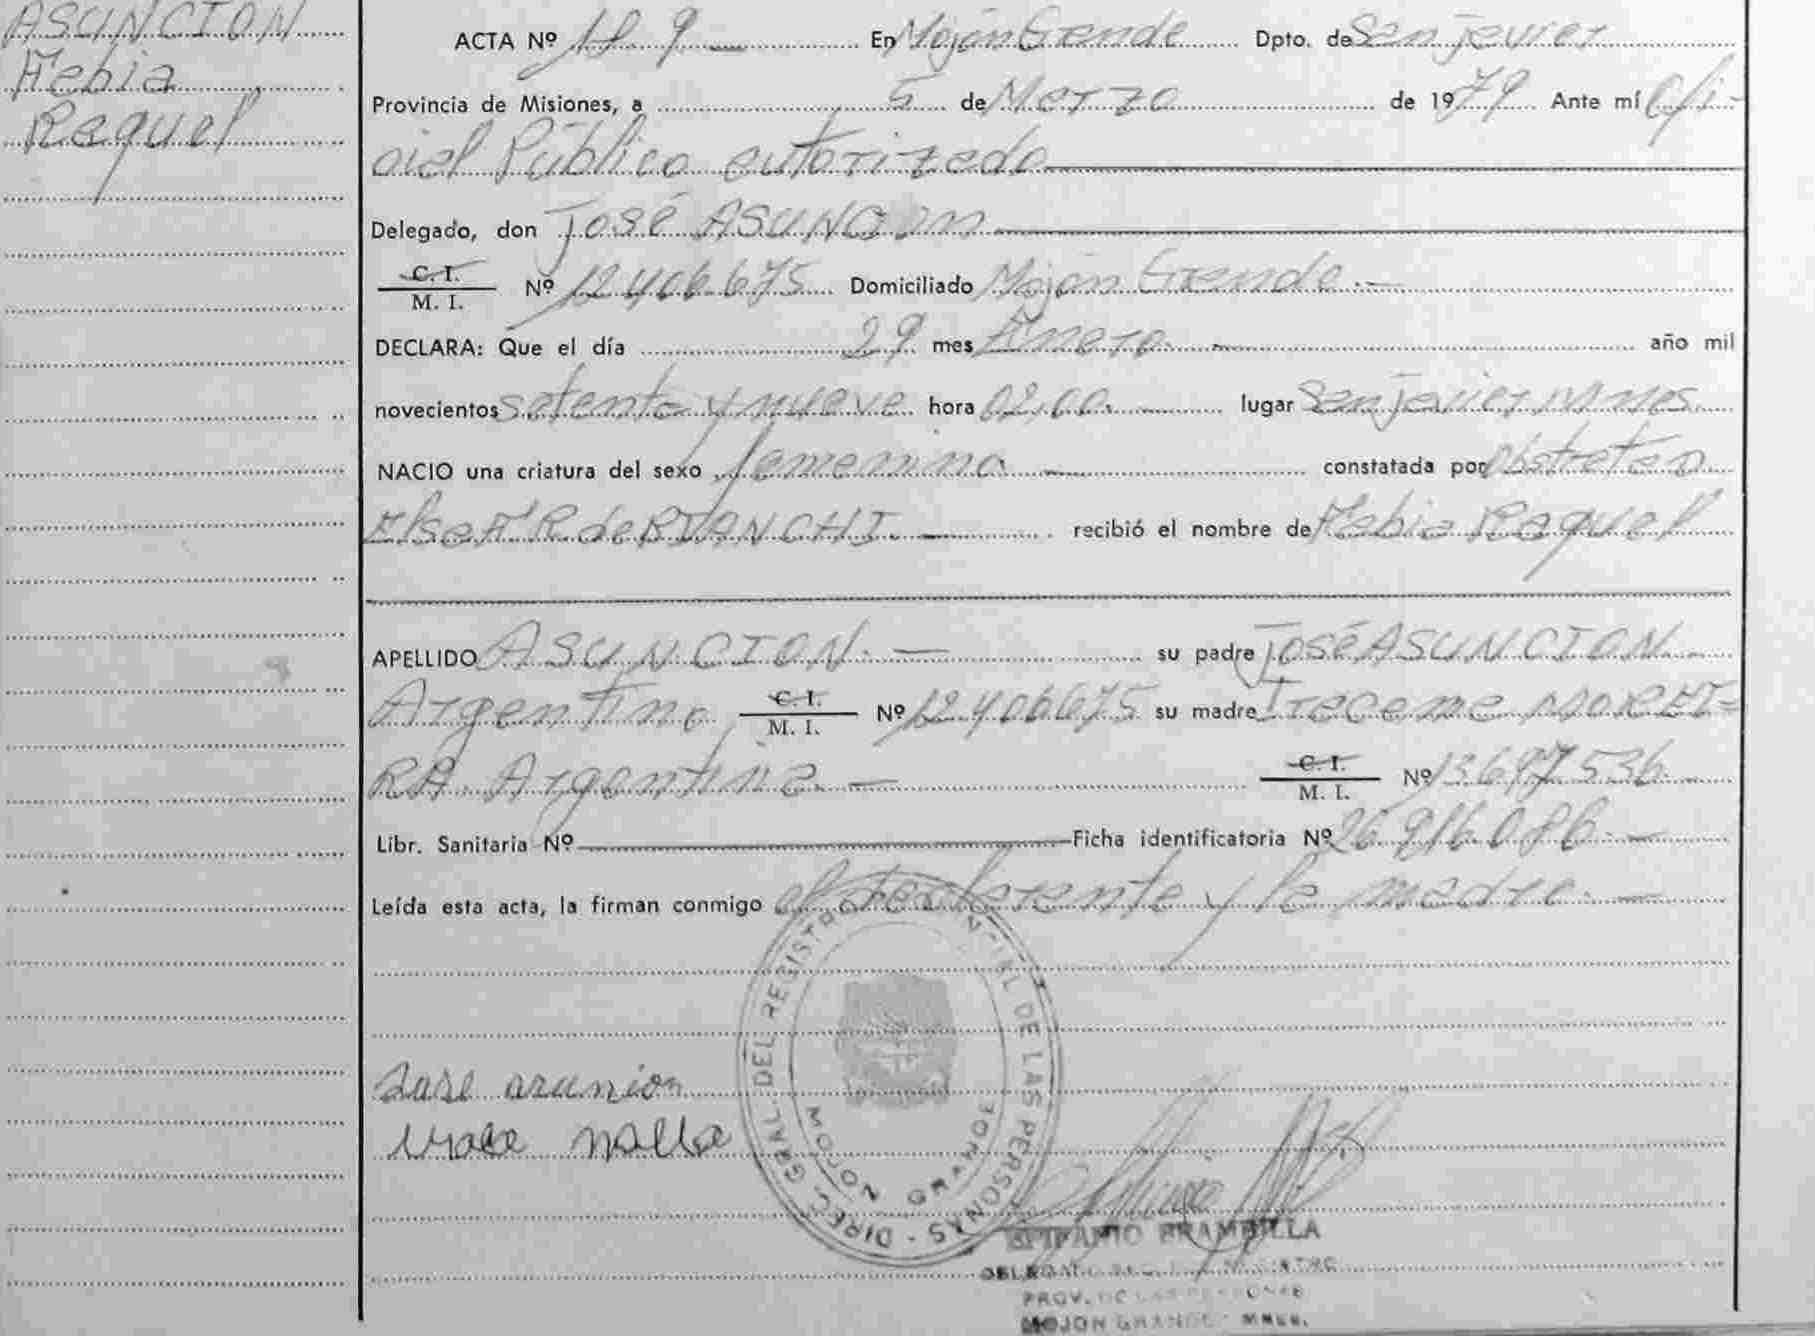 ASUNCION
Febia
Raquel
ACTA Nº 9 En Mojón Grande Dpto. de San javier
Provincia de Misiones, a 5 de Marzo de 1979 Ante mí Ofi-
cial Público autorizado
Delegado, don José ASUNCION
C. I.
M. I. Nº 12.406.675 Domiciliado Mojón Grande.
DECLARA: Que el día 29 mes Enero. año mil
novecientos setenta y nueve hora 02,00. lugar San javier Mnes
NACIO una criatura del sexo femenino constatada por
Elsa R de BIANCHI. recibió el nombre de Febia Raquel
APELLIDO ASUNCION. su padre José ASUNCION
Argentino C. I.
M. I. Nº 12.406.675 su madre Iracema MOREI-
RA. Argentina. C. I.
M. I. Nº 13.697.536
Libr. Sanitaria Nº Ficha identificatoria Nº 26.916.086.
Leída esta acta, la firman conmigo el declarente y la madre.
DIREC. GRAL. DEL REGISTRO DE LAS PERSONAS
MOJON GRANDE
Jose asunion
EPIFANIO BRAMBILLA
DELEGADO
PROV. DE LAS PERSONAS
MOJON GRANDE MNES.